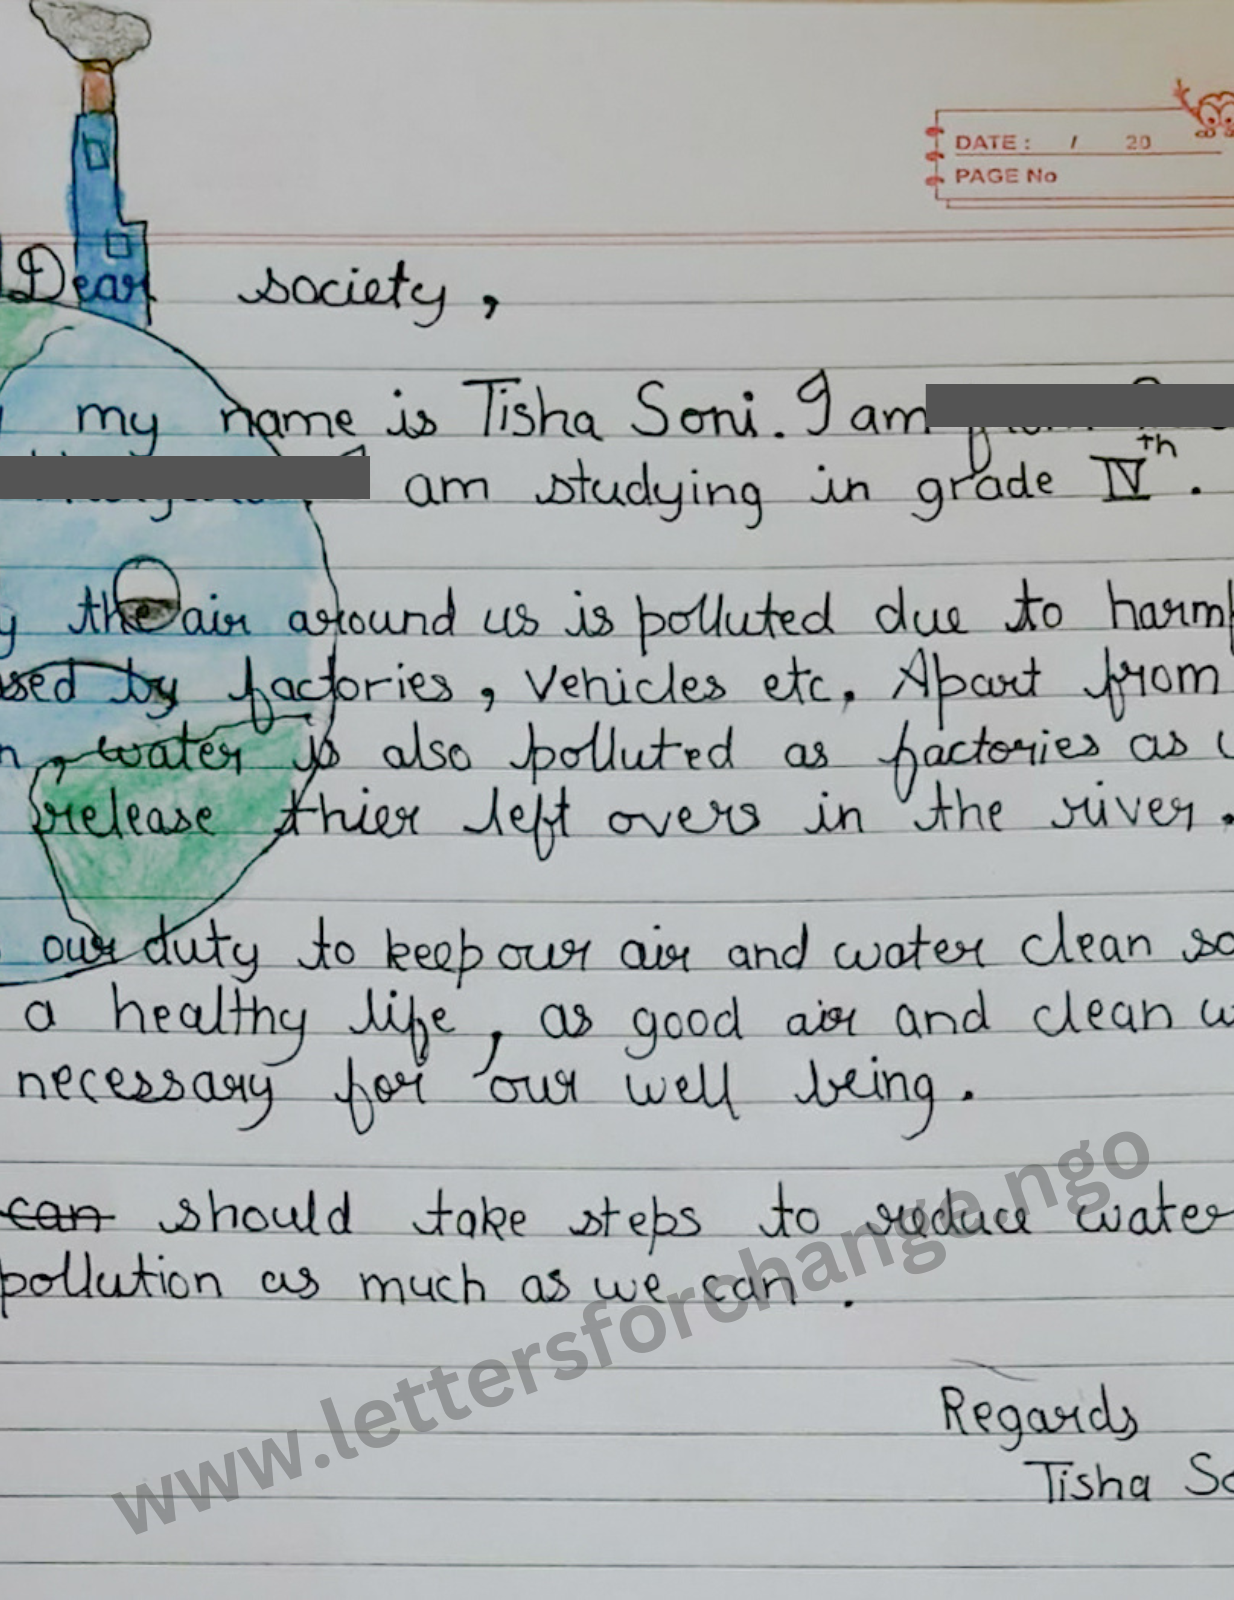 DATE : / 20
PAGE No
Dear society,
my name is Tisha Soni. I am
am studying in grade IVth.
the air around us is polluted due to
by factories, vehicles etc. Apart from
water is also polluted as factories as
release thier left overs in the river.
our duty to keep our air and water clean so
a healthy life, as good air and clean
necessary for our well being.
can should take steps to reduce water
pollution as much as we can.
Regards
Tisha
www.lettersforchange.ngo